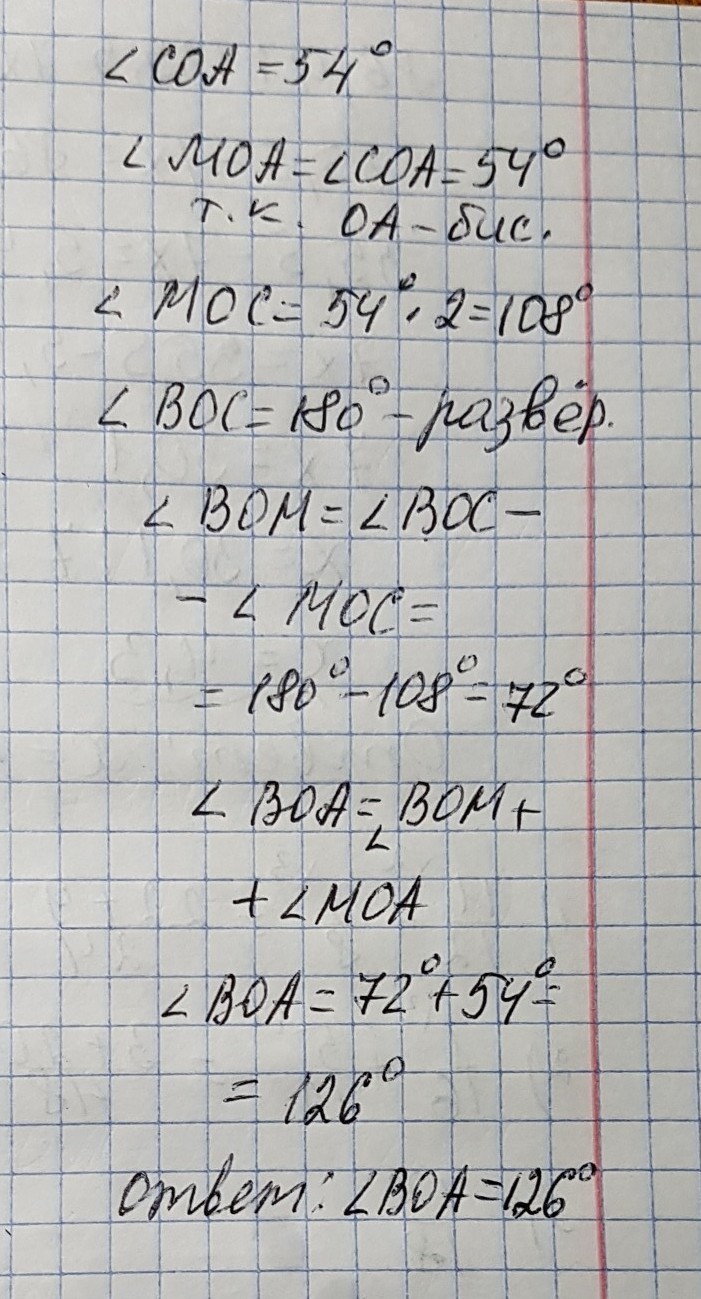 ∠ COA = 54°
∠ MOA = ∠COA = 54°
т.к. OA – бис.
∠ MOC = 54° · 2 = 108°
∠ BOC = 180° – развёр.
∠ BOM = ∠ BOC –
– ∠ MOC =
= 180° – 108° = 72°
∠ BOA = ∠ BOM +
+ ∠MOA
∠ BOA = 72° + 54° =
= 126°
ответ: ∠BOA = 126°